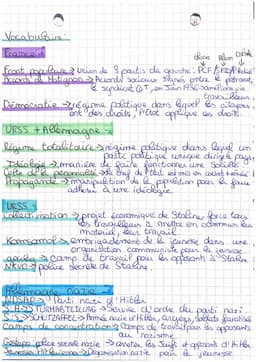 Vocabulaire:
France:
Blum
Front populaire → union de 3 partis de gauche: PCF/SFIO/
Accords de Matignon → Accords sociaux signés entre le patronat,
le syndicat CGT, en Juin 1936
travailleurs.
Démocratie → régime politique dans lequel les citoyens
ont des droits, l'Etat applique ces droits.
URSS + Allemagne:
Régime totalitaire → régime politique dans lequel un
parti politique unique dirige pays.
Idéologie → manière de faire fonctionner une Société
Culte de la personnalité → le chef de l'Etat est mis en avant
Propagande → manipulation de la population pour la faire
adhérer à une idéologie.
URSS:
Collectivisation → projet économique de Staline, force tous
les travailleurs à mettre en commun leur
matériel, leur travail
Komsomol → embrigadement de la jeunesse dans une
organisation communiste pour la jeunesse
goulag → camp de travail pour les opposants à Staline
NKVD → police secrète de Staline.
Allemagne nazie:
NDSAP → Parti nazi d'Hitler
S.A → STURMABTEILUNG → Service d'ordre du parti nazi.
S.S → SCHUTZSTAFFEL → Armée noire d'Hitler,
Camps de concentration → Camps de travail pour les opposants
au nazisme
Gestapo police secrète nazie → arrête les Juifs et opposants d'Hitler
Organisation nazie pour la jeunesse